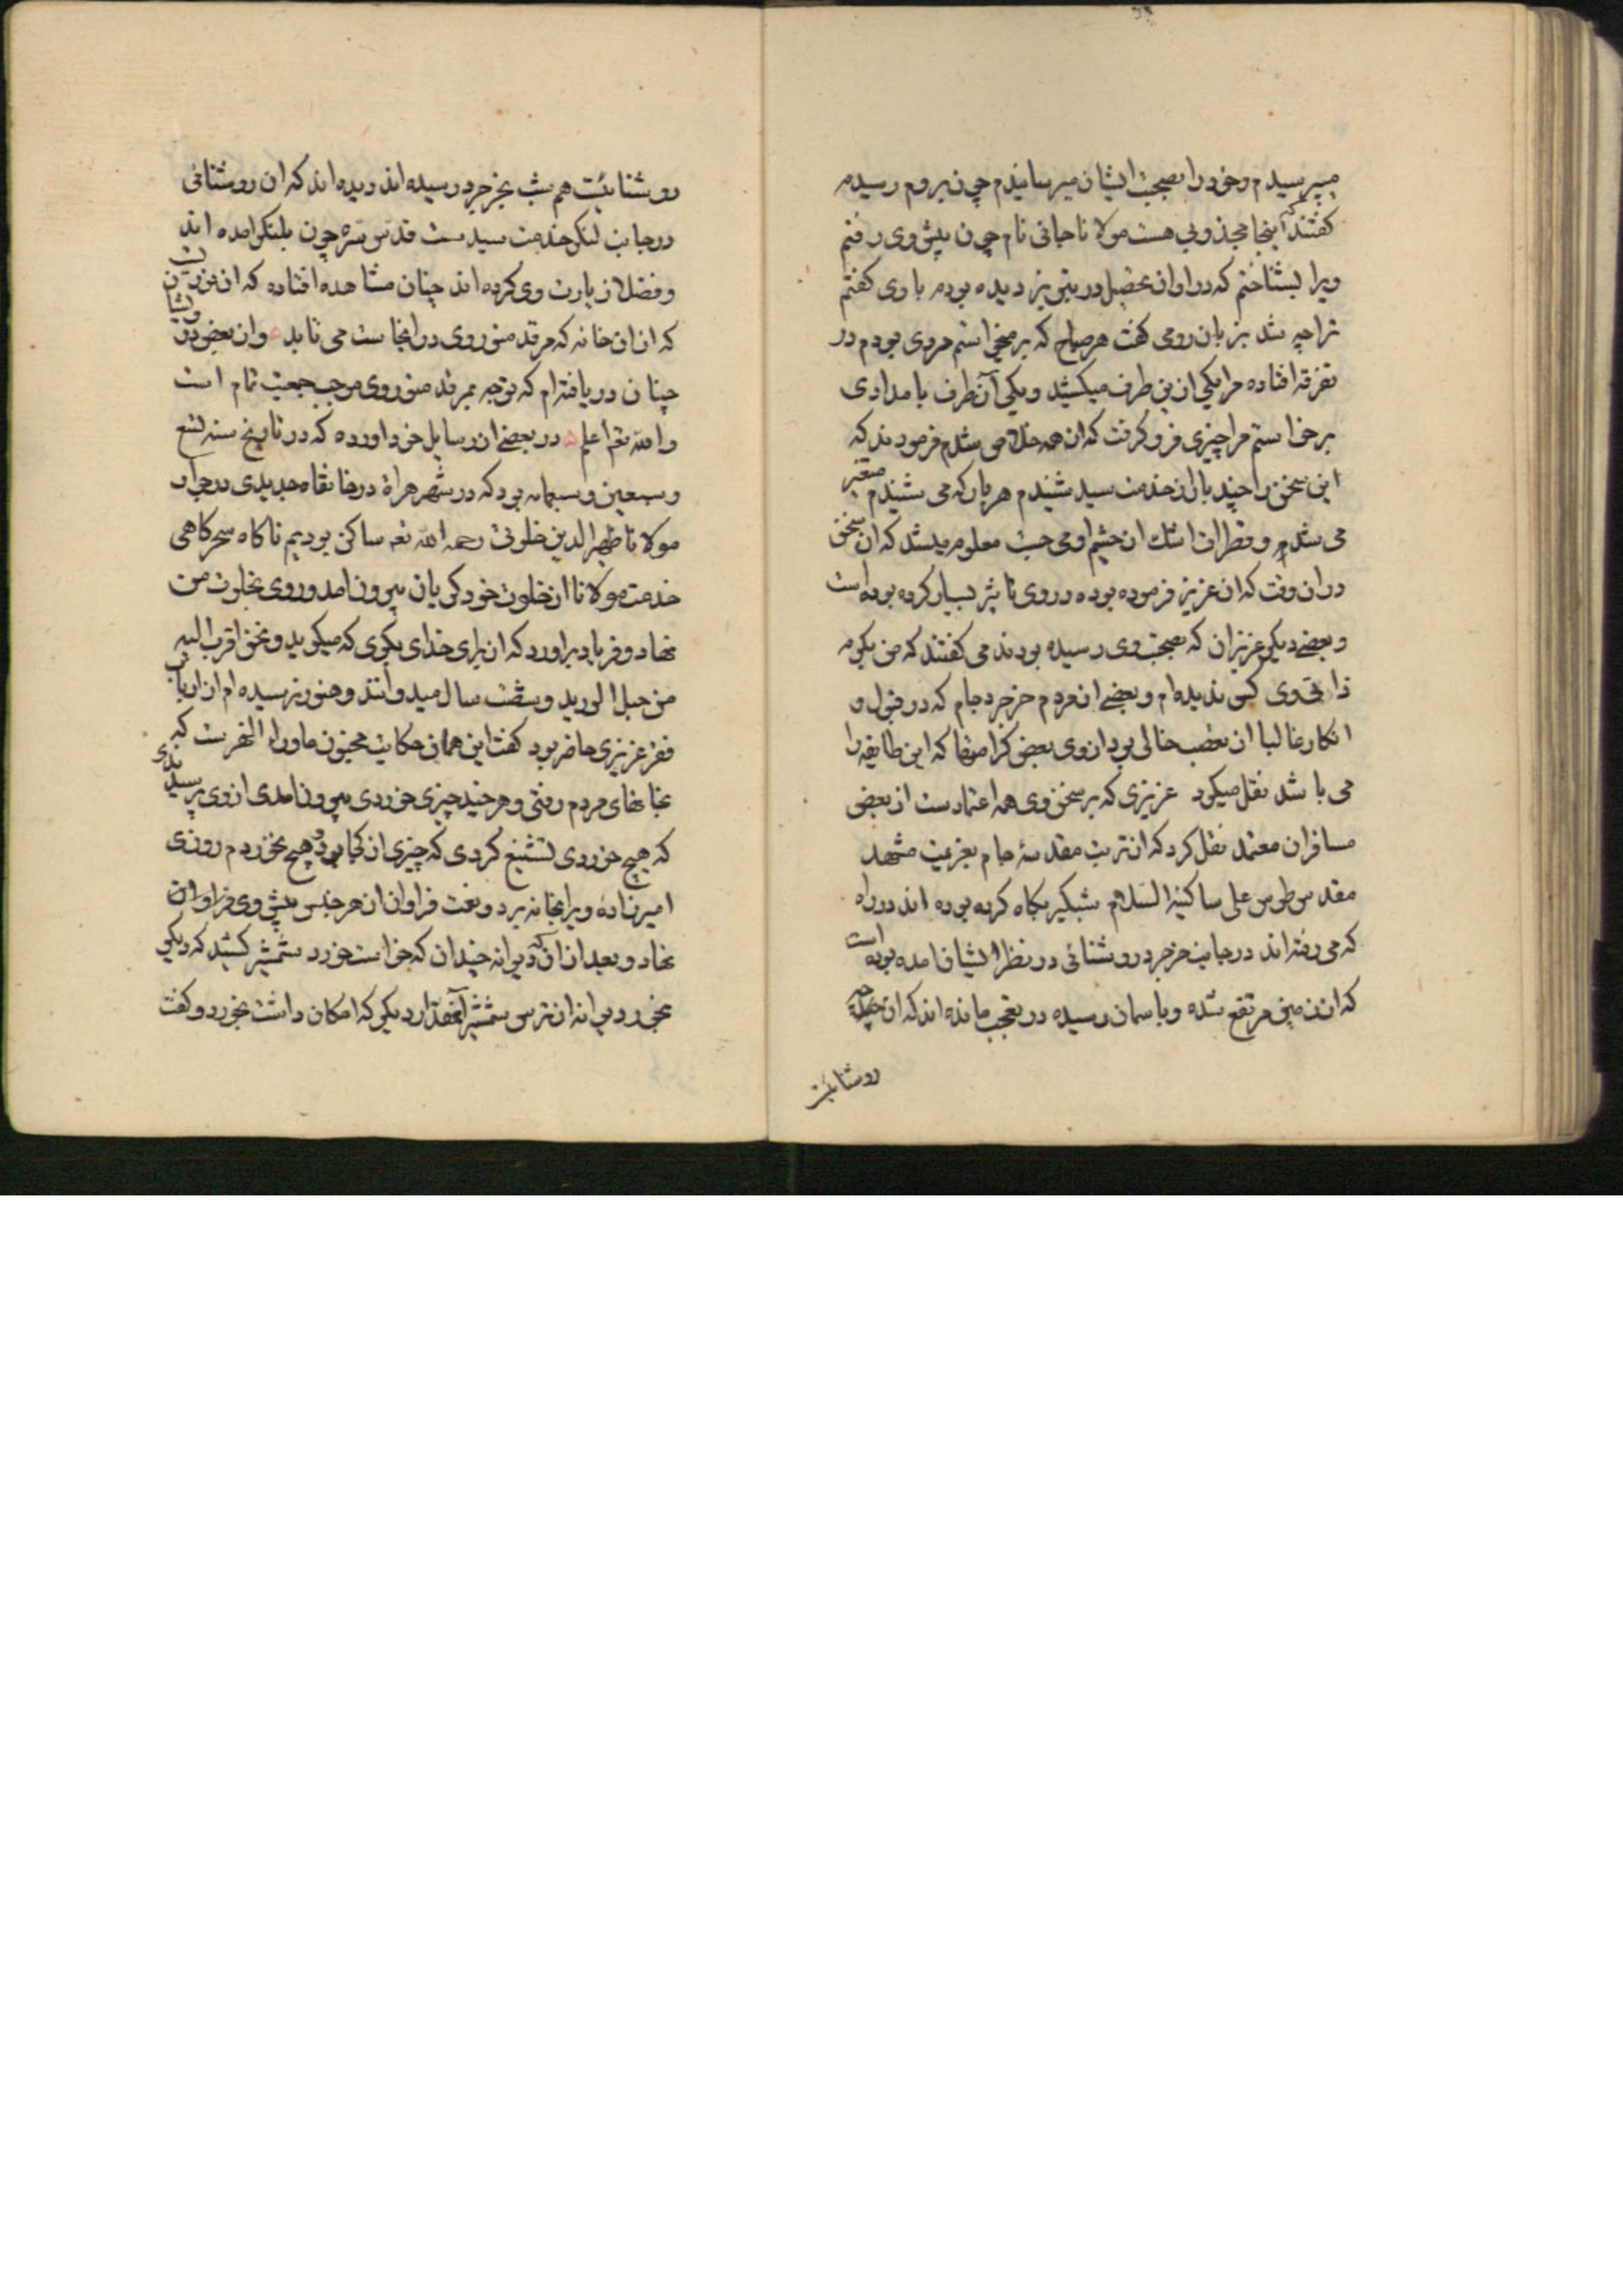 میپرسیدم وخودرا بصحبت ایشان میرسانیدم چون بروم رسیدم
کفتند که اینجا مجذوبی هست مولانا جانی نام چون پیش وی رفتم
ویرا بشناختم که در اوان تحصیل در تبریز دیده بودم باوی کفتم
ترا چه شد بزبان رومی کفت هر صباح که برمیخواستم مردی بودم در
تفرقه افتاده مرا یکی ازین طرف میکشید ویکی ازآن طرف بامدادی
برخواستم مرا چیزی فروکرفت که ازهمه خلاص شدم فرمودند که
این سخن را چند بار از خدمت سید شنیدم هربار که می شنیدم متغیر
می شدم وقطرات اشک از چشم او می جست معلوم میشد که ان سخن
دران وقت که ان عزیز فرموده بوده دروی تاثیر بسیار کرده بوده است
وبعضی دیکر عزیزان که بصحبت وی رسیده بودند می کفتند که من بکرم
ذاتی وی کسی ندیده ام وبعضی از مردم خرجرد جام که در قبول و
انکار غالبا از تعصب خالی بود از وی بعضی کرامتها که این طایفه را
می باشد نقل میکرد عزیزی که بر سخن وی همه اعتمادست از بعضی
مسافران معتمد نقل کرد که از تربت مقدسهٔ جام بعزیمت مشهد
مقدس طوس علی ساکنیه السلام شبکیر پکاه کرده بوده اند در راه
که می رفته اند در جانب خرجرد روشنائی در نظر ایشان امده بوده است
که از زمین مرتفع شده وباسمان رسیده در تعجب مانده اند که ان چه
روشنائیت
روشنائیت هم شب بخرجرد رسیده اند دیده اند که ان روشنائی
در جانب لنکر خدمت سید ست قدس سره چون بلنکر امده اند
وقصد زیارت وی کرده اند چنان مشاهده افتاده که ان نوریت
که ازان خانه که مرقد منور وی درانجاست می تابد واز بعضی درویشان
چنان دریافته ام که توجه بمرقد منور وی موجب جمعیت تمام است
والله تعم اعلم در بعضی از رسایل خود اورده که در تاریخ سنه تسع
وسبعین وسبعمائه بود که در شهر هراة در خانقاه جدیدی در جوار
مولانا ظهیر الدین خلوتی رحمه الله تعم ساکن بودیم ناکاه سحرکاهی
خدمت مولانا از خلوت خود کریان بیرون امد وروی بخلوت من
نهاد وفریاد براورد که از برای خدای بکوی که میکوید ونحن اقرب الیه
من حبل الورید وشصت سال میدوانند وهنوز نرسیده ام از ارباب
فقر عزیزی حاضر بود کفت این همان حکایت مجنون ماوراء النهرست که
بخانهای مردم رفتی وهرچند چیزی خوردی بیرون امدی ازوی پرسیدندی
که هیچ خوردی تشنیع کردی که چیزی از کجا بود وهیچ نخوردم روزی
امیرزاده ویرا بخانه برد ونعمت فراوان از هر جنس پیش وی فراوان
نهاد وبعد ازان که ان دیوانه چندان که خواست خورد شمشیر کشید که دیکر
بخور دیوانه از ترس شمشیر آنمقدار دیکر که امکان داشت بخورد وکفت